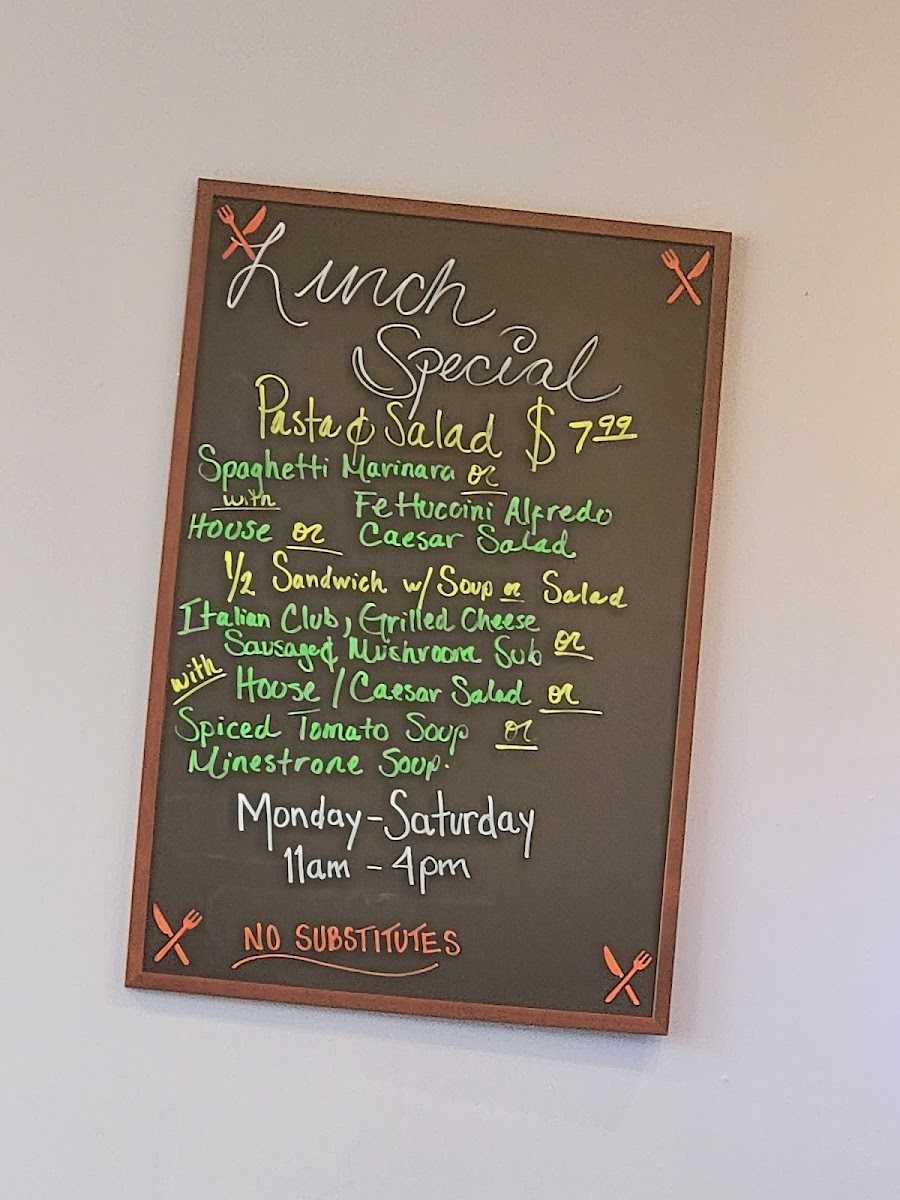 Lunch
Special
Pasta & Salad $ 7.99
Spaghetti Marinara or
with Fettuccini Alfredo
House or Caesar Salad
1/2 Sandwich w/ Soup or Salad
Italian Club, Grilled Cheese
Sausage & Mushroom Sub or
with House / Caesar Salad or
Spiced Tomato Soup or
Minestrone Soup.
Monday-Saturday
11am - 4pm
NO SUBSTITUTES